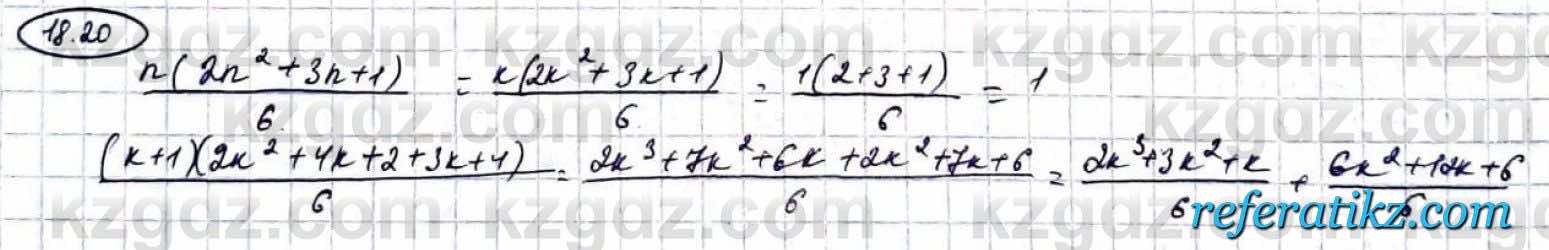 18.20
n(2n²+3n+1)/6 = k(2k²+3k+1)/6 = 1(2+3+1)/6 = 1
(k+1)(2k²+4k+2+3k+4)/6 = 2k³+7k²+6k+2k²+7k+6/6 = 2k³+3k²+k/6 + 6k²+12k+6/6
kzgdz.com
referatikz.com